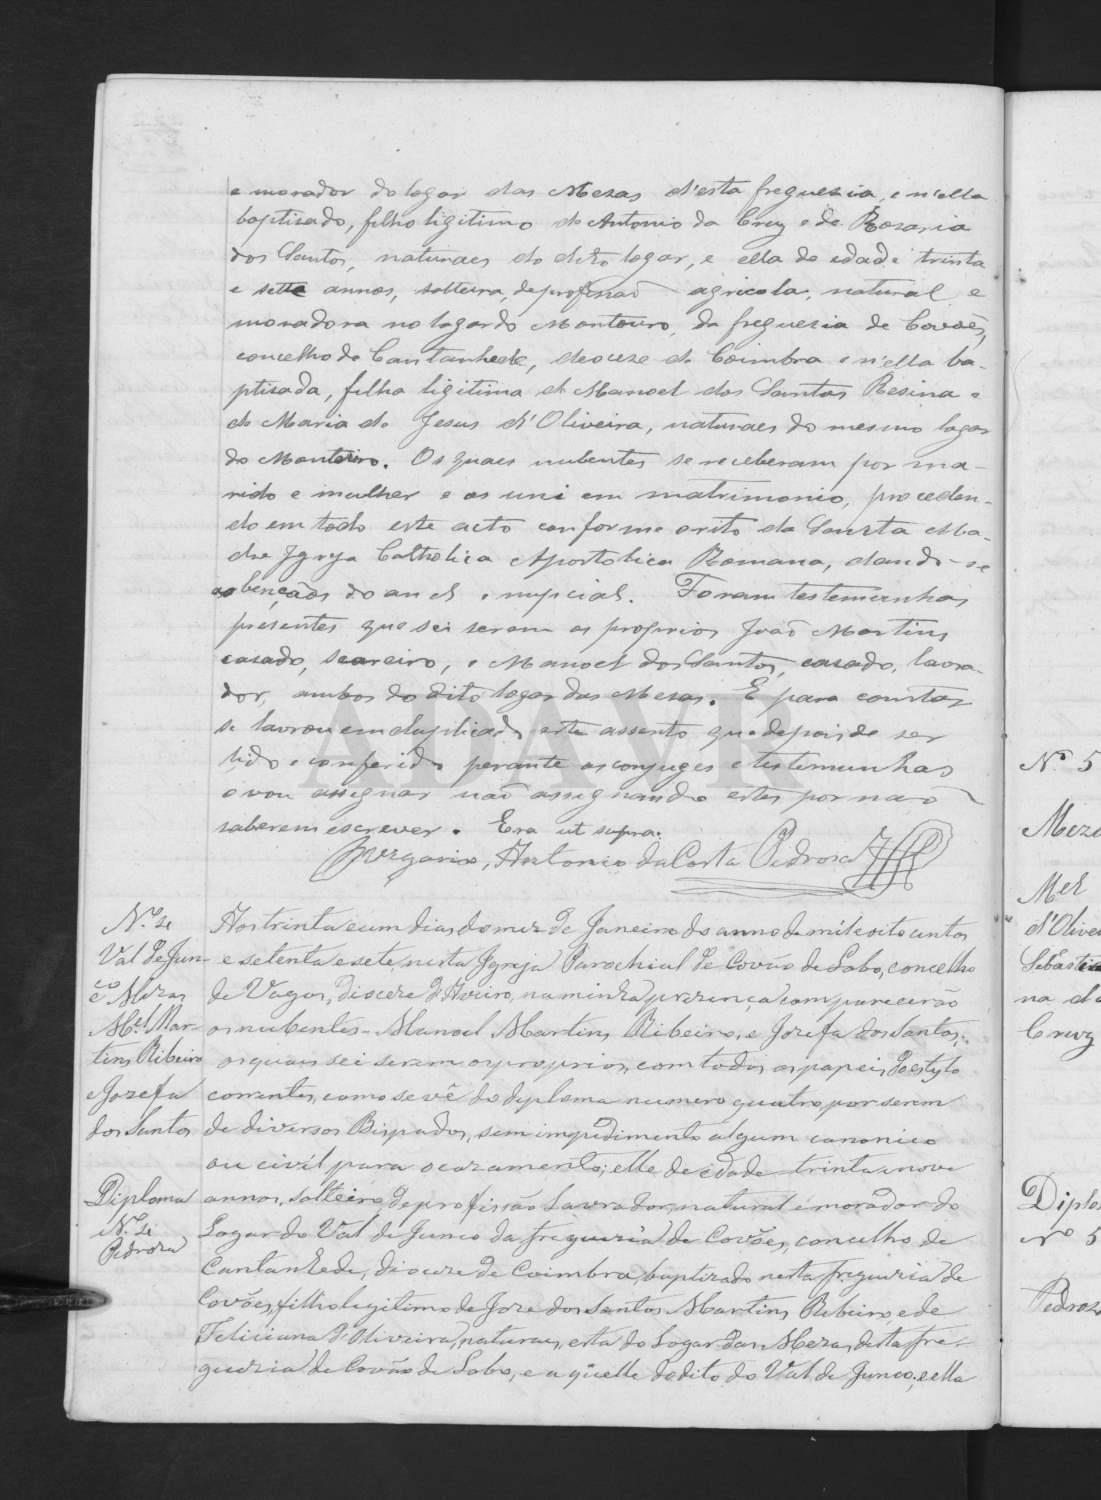 e morador do logar das Mesas d'esta freguezia, e n'ella
baptisado, filho ligitimo de Antonio da Cruz e de Rosaria
dos Santos, naturaes do dito logar, e ella de edade trinta
e sette annos, solteira, de profissaõ agricola, natural e
moradora no logar do Montouro, da freguezia de Covoẽs,
concelho de Cantanhede, diocese de Coimbra e n'ella ba-
ptisada, filha ligitima de Manoel dos Santos Resina e
de Maria de Jesus d'Oliveira, naturaes do mesmo logar
do Montouro. Os quaes nubentes se receberam por ma-
rido e mulher e os uni em matrimonio, proceden-
do em todo este acto conforme o rito da Santa Ma-
dre Igreja Catholica Apostolica Romana, dando-se
as bençaõs do anel e nupciaes. Foram testemunhas
presentes que sei serem os proprios João Martins
casado, seareiro, e Manoel dos Santos, casado, lavra-
dor, ambos do dito logar das Mesas. E para constar
se lavrou em duplicado este assento que depois de ser
lido e conferido perante os conjuges e testemunhas
o vou assignar naõ assignando estes por naõ
saberem escrever. Era ut supra.
Antonio da Costa Pedrosa
ADAVR
Nº 4
Val de Jun-
co
e Mezas
Mel Mar-
tins Ribeiro
e Jozefa
dos Santos
Diploma
Nº 4
Pedroza
Aos trinta e um dias do mez de Janeiro do anno de mil e oito centos
e setenta e sete, nesta Igreja Parochial de Covão de Lobo, concelho
de Vagos, Diocese d'Aveiro, na minha prezença compareceraõ
os nubentes - Manoel Martins Ribeiro, e Jozefa dos Santos,
os quais sei serem os proprios, com todos os papeis do estylo
correntes, como se vê do diploma numero quatro por serem
de diversos Bispados, sem impedimento algum canonico
ou civil para o cazamento; elle de edade trinta e nove
annos, solteiro, de profissão Lavrador, natural e morador do
Logar do Val de Junco da freguezia de Covões, concelho de
Cantanhede, diocese de Coimbra, baptizado nesta freguezia de
Covões, filho legitimo de Joze dos Santos Martins Ribeiro, e de
Feliciana d'Oliveira, naturaes, esta do Logar das Mezas, desta fre-
guezia de Covão de Lobo, e aquelle do dito do Val de Junco; e ella
Nº 5
Mel
d'Olivei
na da
Cruz
Diplo
nº 5
Pedroz